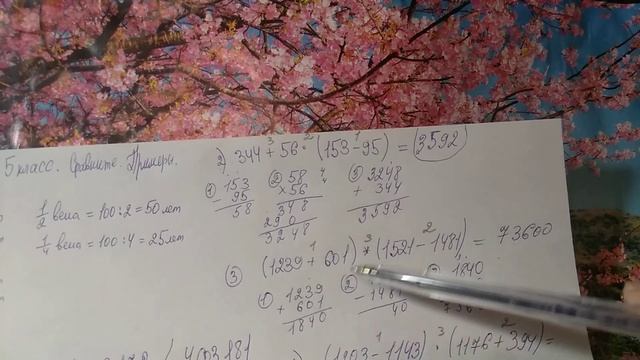 5 класс. Сравните. Примеры.
1/2 века = 100:2 = 50 лет
1/4 века = 100:4 = 25 лет
2) 344 + 56 · (153 - 95) = 3592
① 153
- 95
58
② 58
× 56
348
290
3248
③ 3248
+ 344
3592
③ (1239 + 601) * (1521 - 1481) = 73600
① 1239
+ 601
1840
②
- 1481
40
1840
(1203 - 1143) · (1176 + 394) =